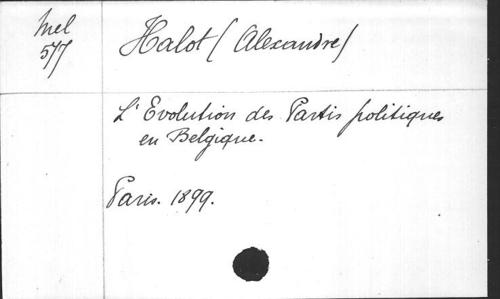 Mel
577
Halot (Alexandre)
L'Evolution des Partis politiques
en Belgique.
Paris. 1899.